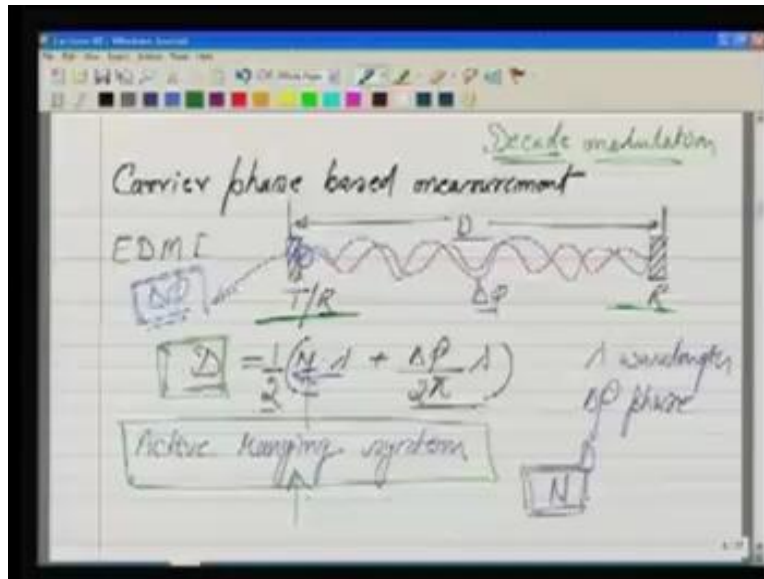 Decade modulation
Carrier phase based measurement
D
EDMI
Δφ
Δφ
T/R
R
D = 1/2 (N · λ + Δφ/2π λ)
λ wavelength
Δφ phase
Active Ranging system
N